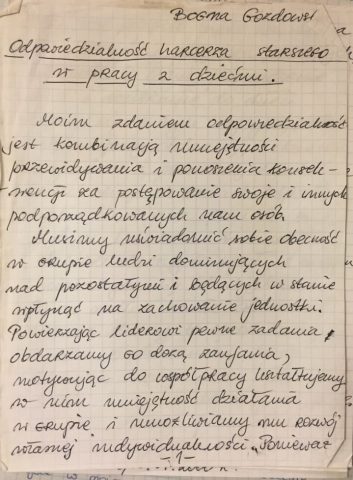 Bogna Gozdowsk
Odpowiedzialność harcerza starszego
w pracy z dziećmi.
Moim zdaniem odpowiedzialność
jest kombinacją umiejętności
przewidywania i ponoszenia konsek-
wencji za postępowanie swoje i innych
podporządkowanych nam osób.
Musimy uświadomić sobie obecność
w grupie ludzi dominujących
nad pozostałymi i będących w stanie
wpłynąć na zachowanie jednostki.
Powierzając liderowi pewne zadania,
obdarzamy go dozą zaufania,
motywując do współpracy kształtujemy
w nim umiejętność działania
w grupie i umożliwiamy mu rozwój
własnej indywidualności. Ponieważ
-1-